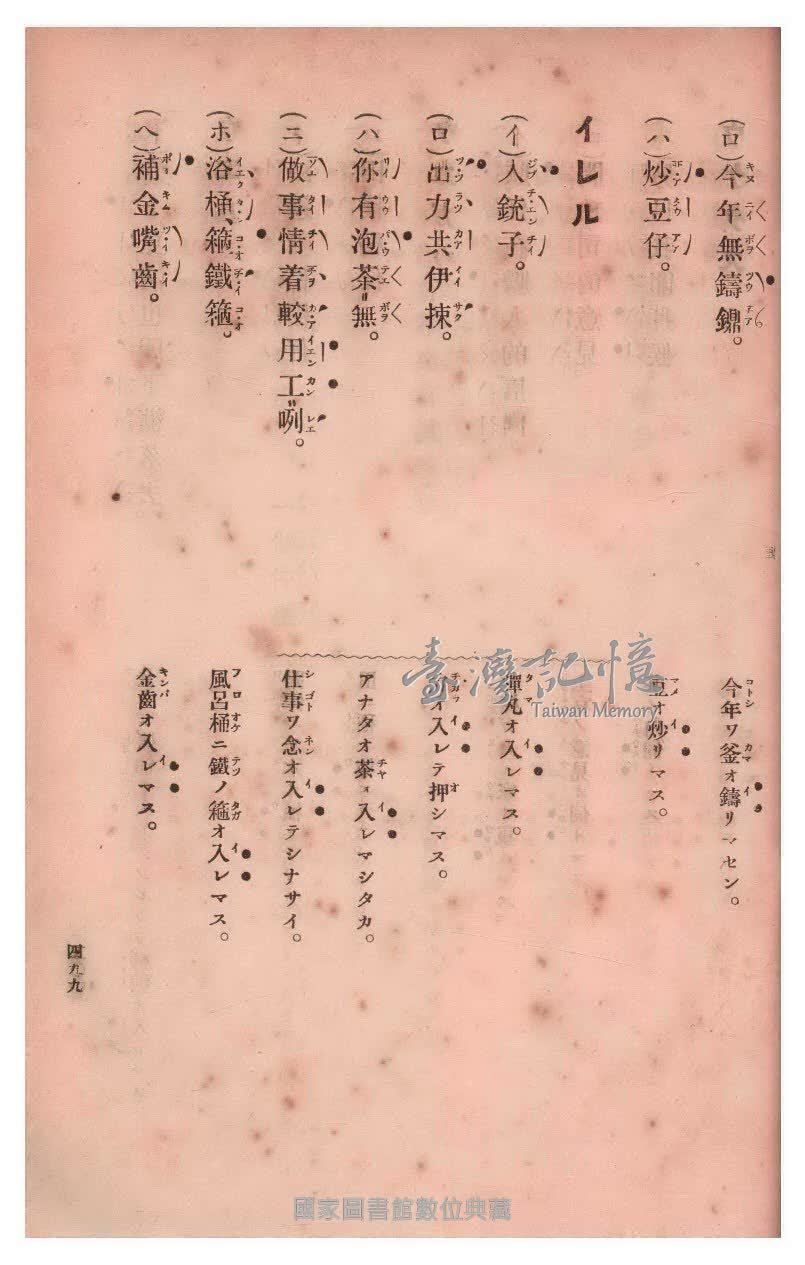 (ロ)今年無鑄鼎。
今年ワ釜オ鑄リマセン。
(ハ)炒豆仔。
豆オ炒リマス。
イレル
(イ)入銃子。
彈丸オ入レマス。
(ロ)出力共伊揀。
オ入レテ押シマス。
(ハ)你有泡茶無。
アナタオ茶オ入レマシタカ。
(ニ)做事情着較用工咧。
仕事ワ念オ入レテシナサイ。
(ホ)浴桶、箍鐵箍。
風呂桶ニ鐵ノ箍オ入レマス。
(ヘ)補金嘴齒。
金齒オ入レマス。
四九九
臺灣記憶
Taiwan Memory
國家圖書館數位典藏